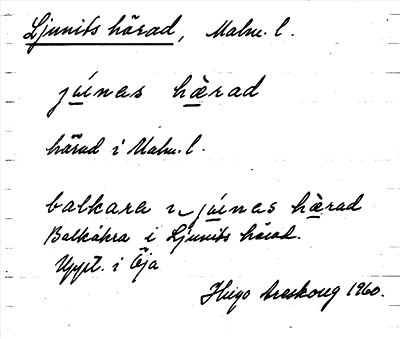 Ljunits härad, Malm. l.
júinas hærad
härad i Malm. l.
balkara i júinas hærad
Balkåkra i Ljunits härad.
Uppt. i Öja
Hugo Areskoug 1960.